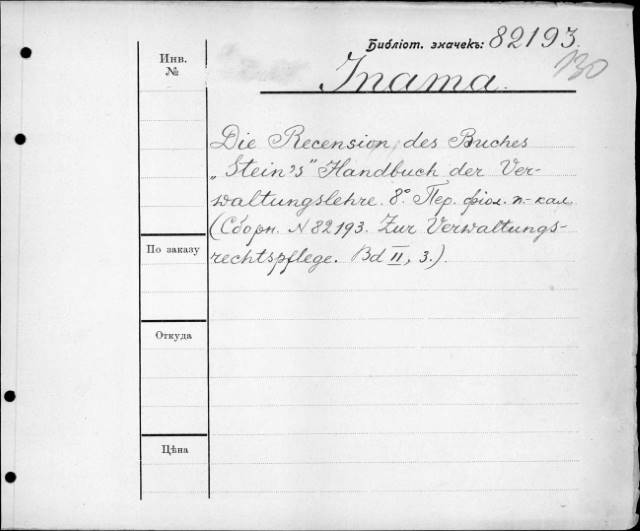 Библіот. значекъ: 82193.
130
Инв.
№
Inama.
Die Recension des Buches
„Stein's" Handbuch der Ver-
waltungslehre. 8° Пер. фіол. п-кал.
(Сборн. N 82193. Zur Verwaltungs-
rechtspflege. Bd II, 3.).
По заказу
Откуда
Цѣна